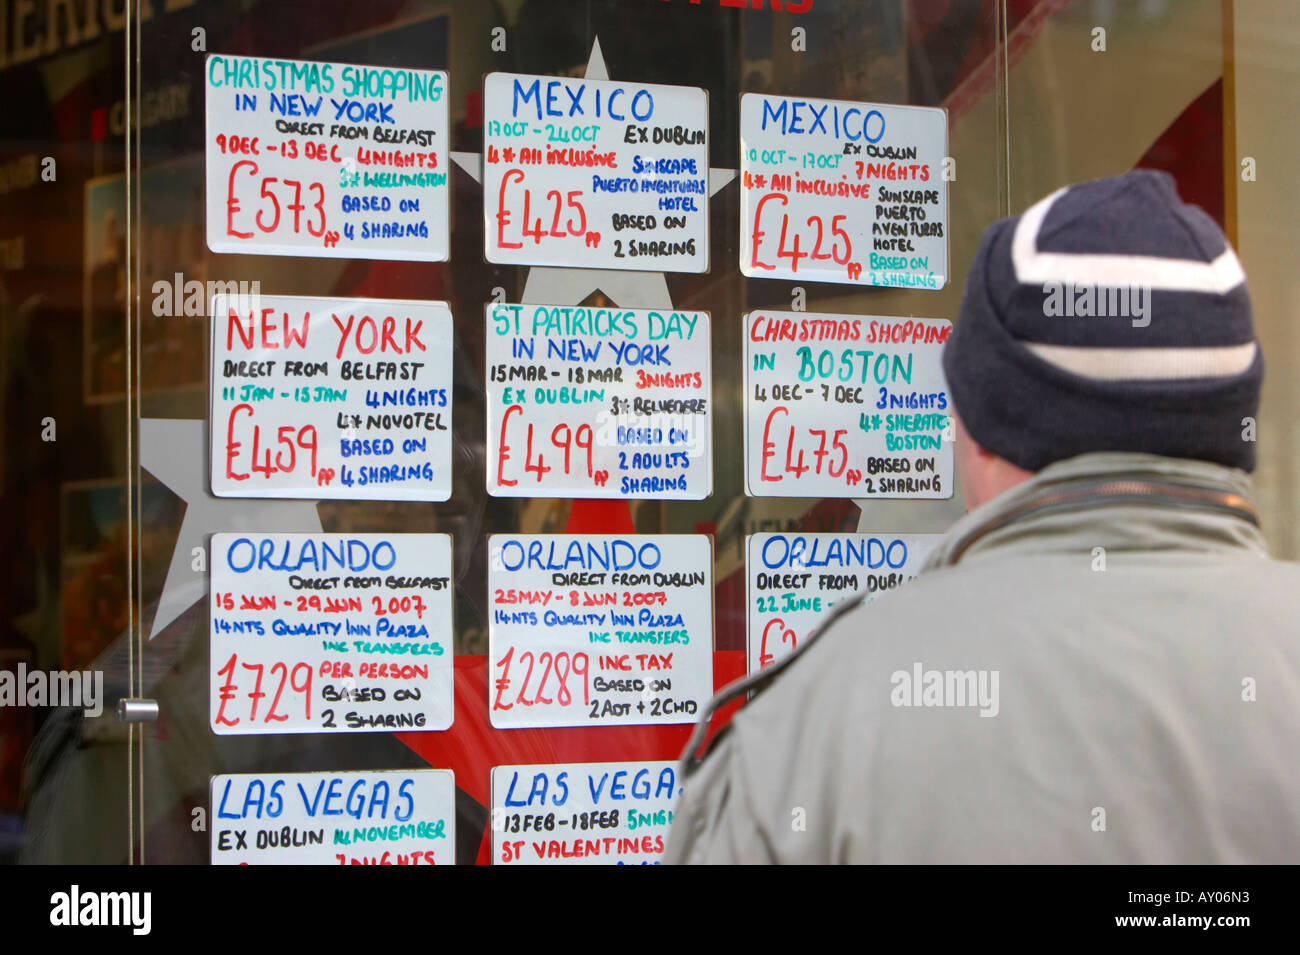 CHRISTMAS SHOPPING
IN NEW YORK
DIRECT FROM BELFAST
9 DEC - 13 DEC 4 NIGHTS
£573 pp
3* WELLINGTON
BASED ON
4 SHARING
MEXICO
17 OCT - 24 OCT EX DUBLIN
4* All inclusive
SUNSCAPE
PUERTO AVENTURAS
HOTEL
£425 pp
BASED ON
2 SHARING
MEXICO
10 OCT - 17 OCT EX DUBLIN
7 NIGHTS
4* All inclusive
SUNSCAPE
PUERTO
AVENTURAS
HOTEL
£425 pp
BASED ON
2 SHARING
NEW YORK
DIRECT FROM BELFAST
11 JAN - 15 JAN 4 NIGHTS
4* NOVOTEL
£459 pp
BASED ON
4 SHARING
ST PATRICKS DAY
IN NEW YORK
15 MAR - 18 MAR 3 NIGHTS
EX DUBLIN
3* BELVEDERE
£499 pp
BASED ON
2 ADULTS
SHARING
CHRISTMAS SHOPPING
IN BOSTON
4 DEC - 7 DEC 3 NIGHTS
4* SHERATO
BOSTON
£475 pp
BASED ON
2 SHARING
ORLANDO
DIRECT FROM BELFAST
15 JUN - 29 JUN 2007
14NTS QUALITY INN PLAZA
INC TRANSFERS
£729 PER PERSON
BASED ON
2 SHARING
ORLANDO
DIRECT FROM DUBLIN
25 MAY - 8 JUN 2007
14NTS QUALITY INN PLAZA
INC TRANSFERS
£2289 INC TAX
BASED ON
2ADT + 2CHD
ORLANDO
DIRECT FROM DUBL
22 JUNE -
14NTS
LAS VEGAS
EX DUBLIN 14 NOVEMBER
7 NIGHTS
LAS VEGA
13 FEB - 18 FEB 5 NIG
ST VALENTINES
CALGARY
NEW Y
alamy
Image ID: AY06N3
www.alamy.com